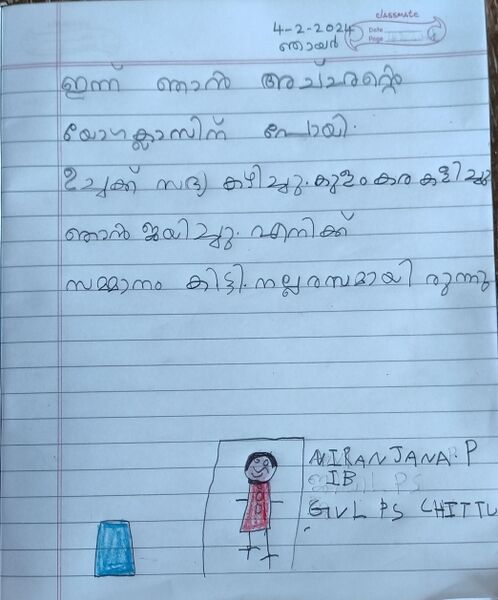 classmate
Date
Page
4-2-2024
ഞായർ
ഇന്ന് ഞാൻ അച്ഛൻ്റെ
യോഗക്ലാസിന് പോയി.
ഉച്ചക്ക് സദ്യ കഴിച്ചു. കുളം കര കളിച്ചു
ഞാൻ ജയിച്ചു. എനിക്ക്
സമ്മാനം കിട്ടി. നല്ലരസമായി രുന്നു
NIRANJANA. P
IB
GVLPS CHITTU